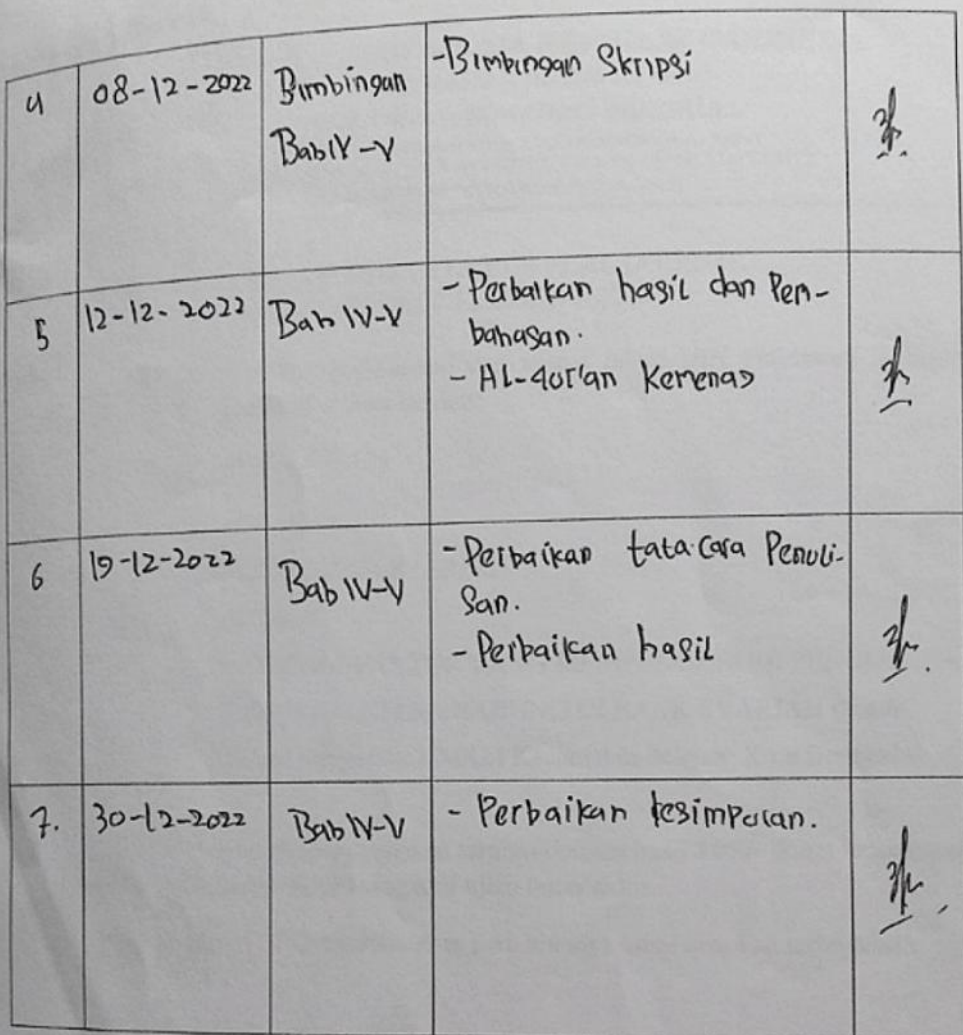 4 08-12-2022 Bimbingan -Bimbingan Skripsi
Bab IV-V
5 12-12-2022 Bab IV-V - Perbaikan hasil dan Pem-
bahasan.
- AL-Qur'an Kemenag
6 19-12-2022 Bab IV-V - Perbaikan tata cara Penuli-
San.
- Perbaikan hasil
7. 30-12-2022 Bab IV-V - Perbaikan kesimpulan.